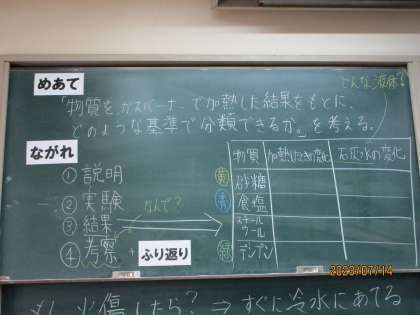 めあて
どんな液体?
「物質をガスバーナーで加熱した結果をもとに、
どのような基準で分類できるか。」を考える。
ながれ
① 説明
② 実験
③ 結果
なんで?
④ 考察 + ふり返り
物質 加熱したときの変化 石灰水の変化
黄 砂糖
青 食塩
スチールウール
緑 デンプン
2023/07/14
もし火傷したら? ⇒ すぐに冷水にあてる